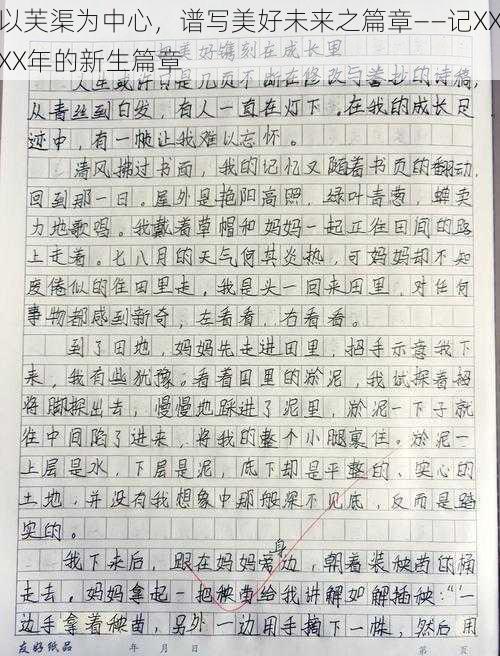 以芙渠为中心，谱写美好未来之篇章——记XX
XX年的新生篇章
美好镌刻在成长里
人生或许是诸页不断在修改与誊抄的诗稿，
从青丝到白发，有人一直在灯下。在我的成长足
迹中，有一帧让我难以忘怀。
清风拂过书面，我的记忆又随着书页的翻动，
回到那一日。屋外是艳阳高照，绿叶青葱，蝉卖
力地歌唱。我戴着草帽和妈妈一起正往田间的路
上走着。七八月的天气何其炎热，可妈妈却不知
疲倦似的往田里走。我是头一回来田里，对任何
事物都感到新奇，左看看，右看看。
到了田地，妈妈先走进田里，招手示意我下
来，我有些犹豫。看着田里的淤泥，我试探着
将脚探出去，慢慢地踩进了泥里，淤泥一下子就
往中间陷了进来，将我的整个小腿裹住。淤泥一
上层是水，下层是泥，底下却是平整的、实心的
土地，并没有我想象中那般深不见底，反而是踏
实的。
我下来后，跟在妈妈身旁边，朝着装秧苗的桶
走去。妈妈拿起一把秧苗给我讲解如解插秧：“一
边手拿着秧苗，另外一边用手摘下一株，然后用
友好纸品 年 月 日 第 页